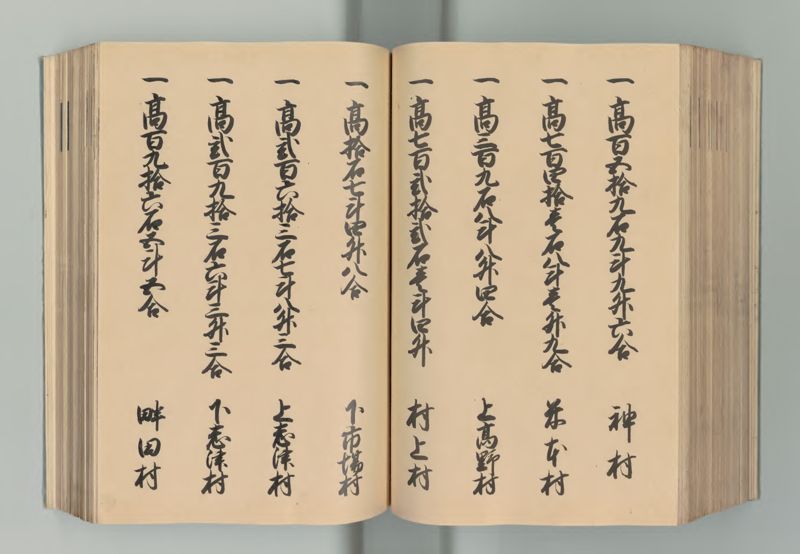 一 高百五拾九石九斗九升六合 神村
一 高七百四拾壱石八斗壱升九合 米本村
一 高三百九石八斗八升四合 上高野村
一 高七百弐拾弐石壱斗四升 村上村
一 高拾石七斗四升八合 下市場村
一 高弐百六拾三石七斗八升三合 上志津村
一 高弐百九拾三石六斗三升三合 下志津村
一 高百九拾六石五斗五合 畔田村